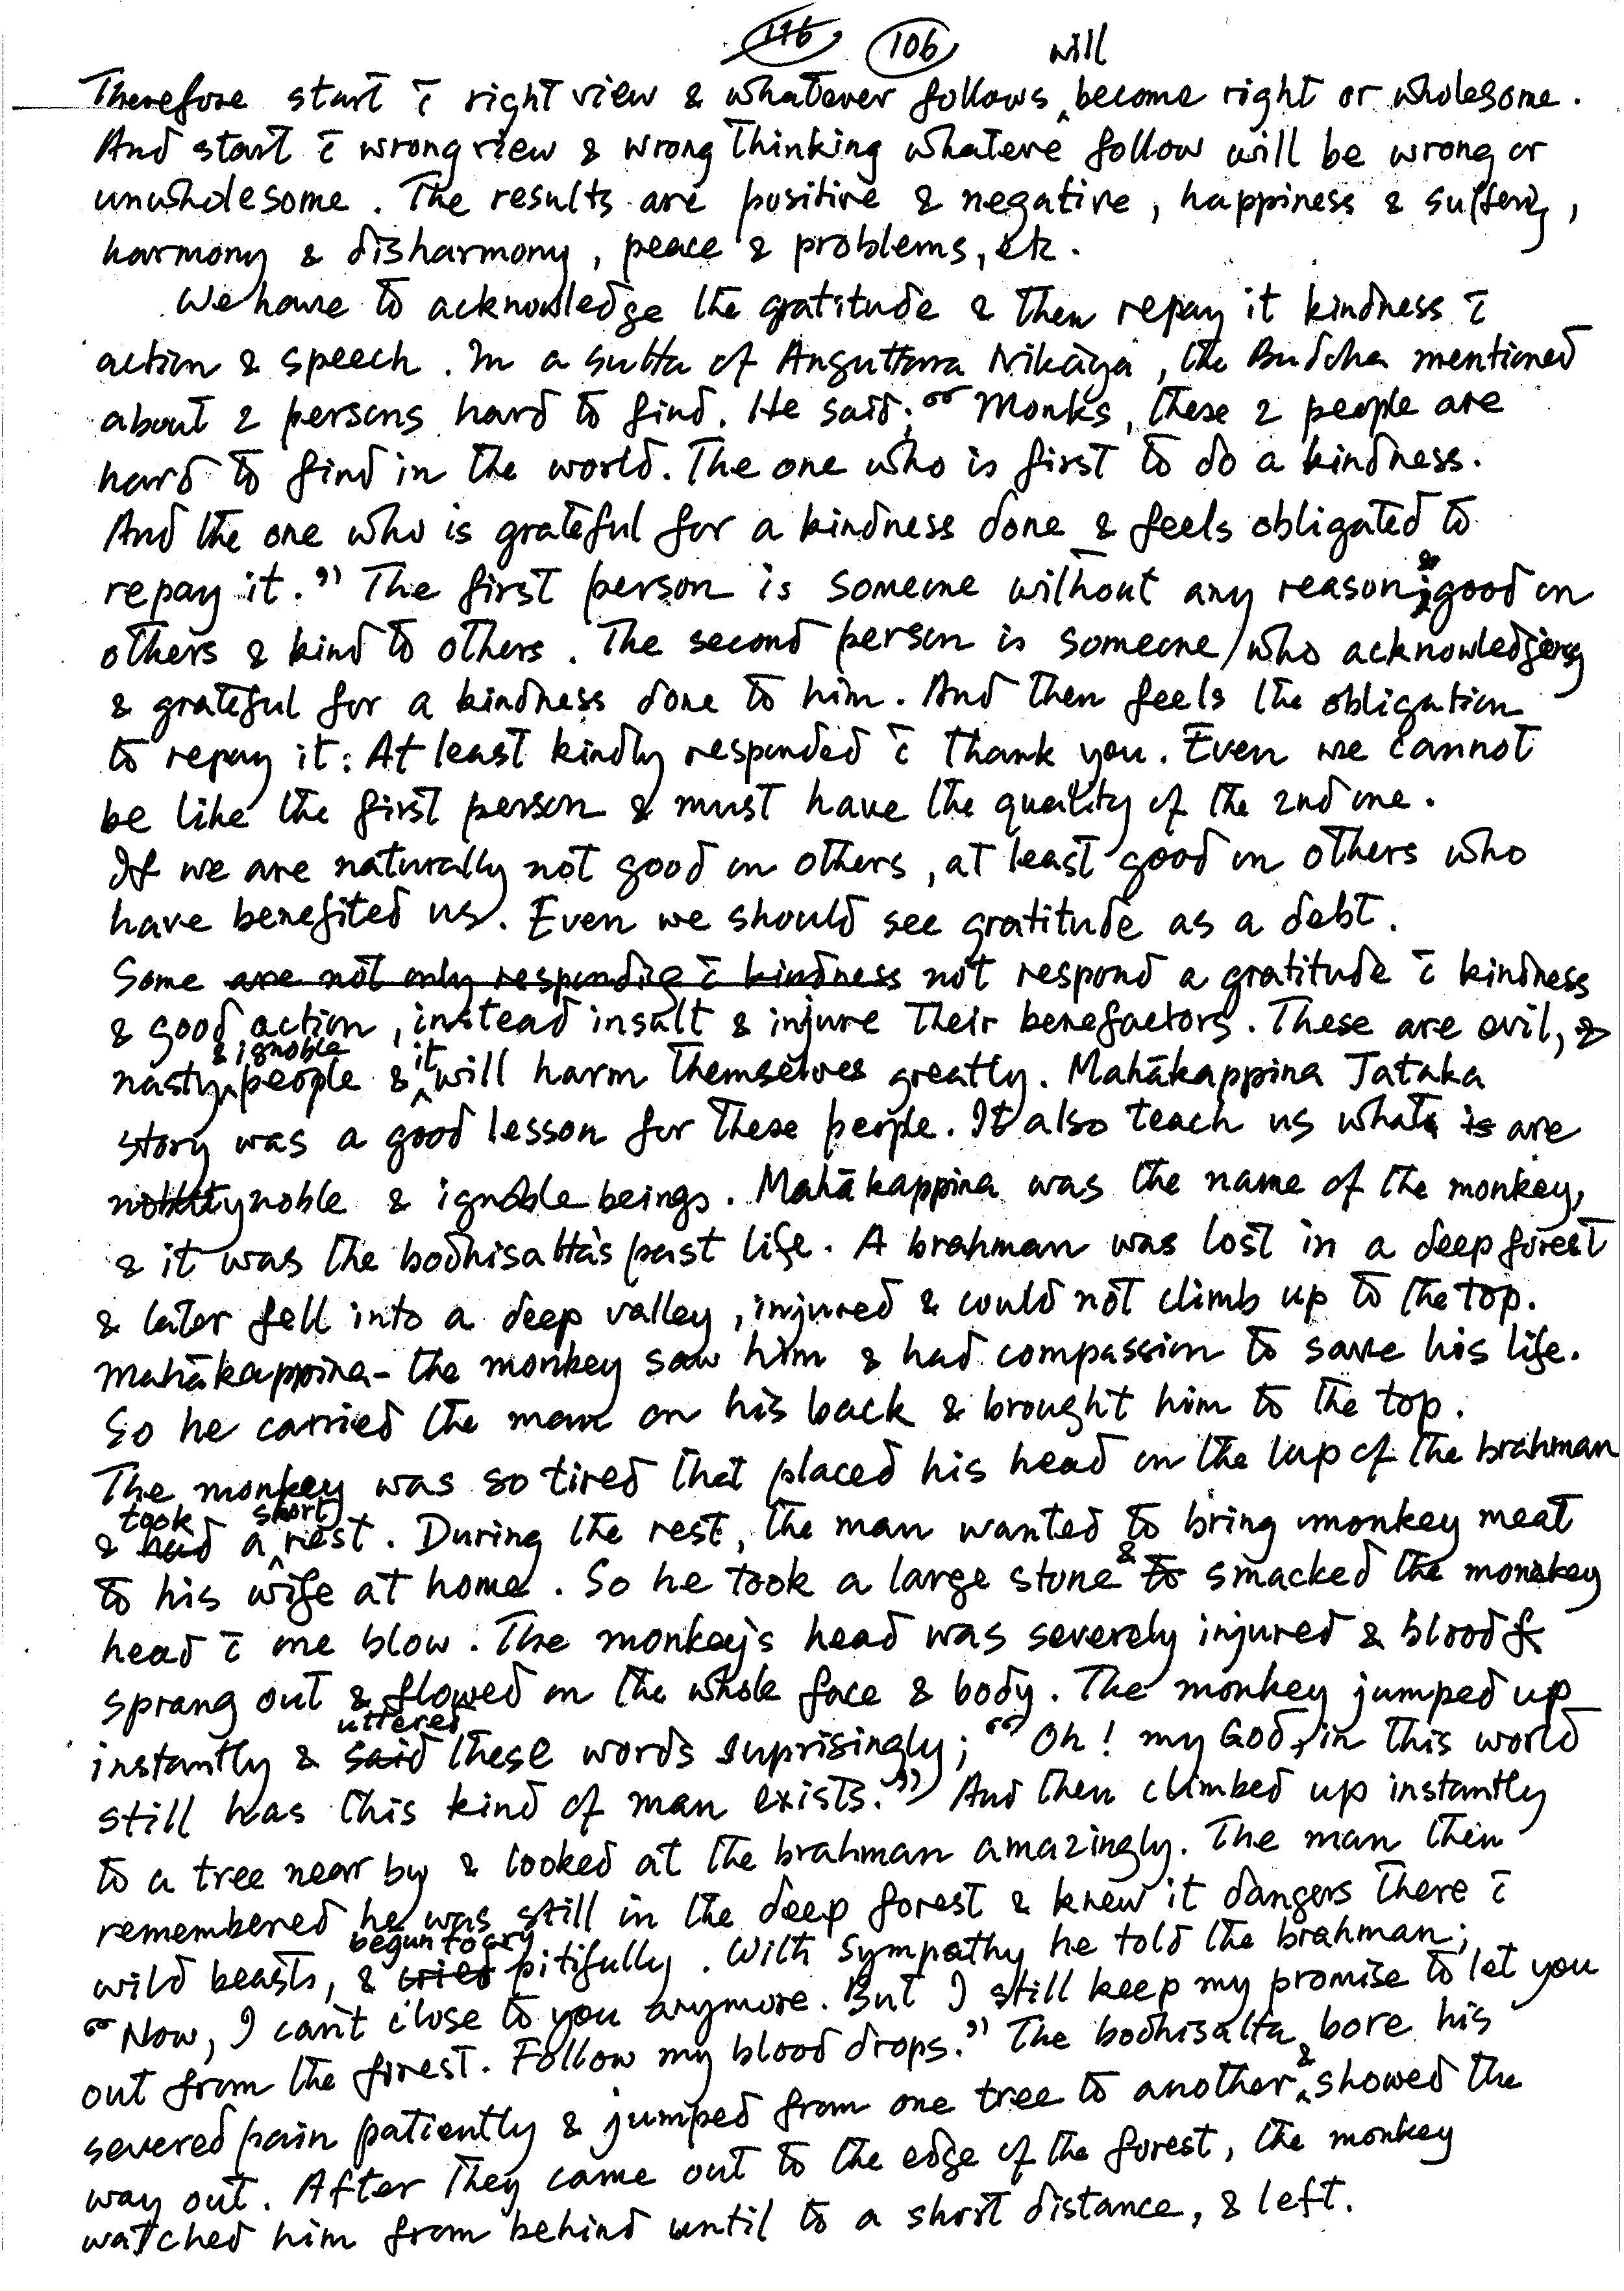 116 106 will
Therefore start c̄ right view & whatever follows ^ become right or wholesome.
And start c̄ wrong view & wrong thinking whateve follow will be wrong or
unwholesome. The results are positive & negative, happiness & suffering,
harmony & disharmony, peace & problems, etc.
We have to acknowledge the gratitude & then repay it kindness c̄
action & speech. In a sutta of Aṅguttara Nikāya, the Buddha mentioned
about 2 persons hard to find. He said; "Monks, these 2 people are
hard to find in the world. The one who is first to do a kindness.
And the one who is grateful for a kindness done & feels obligated to
repay it." The first person is someone without any reason & good on
others & kind to others. The second person is someone who acknowledging
& grateful for a kindness done to him. And then feels the obligation
to repay it: At least kindly responded c̄ thank you. Even we cannot
be like the first person & must have the quality of the 2nd one.
If we are naturally not good on others, at least good on others who
have benefited us. Even we should see gratitude as a debt.
Some are not only responding c̄ kindness not respond a gratitude c̄ kindness
& good action, instead insult & injure their benefactors. These are evil, &
& ignoble it
nasty ^ people & ^ will harm themselves greatly. Mahākappina Jataka
story was a good lesson for these people. It also teach us what is are
noble & ignoble beings. Mahākappina was the name of the monkey,
& it was the bodhisatta's past life. A brahman was lost in a deep forest
& later fell into a deep valley, injured & could not climb up to the top.
Mahākappina - the monkey saw him & had compassion to save his life.
So he carried the man on his back & brought him to the top.
The monkey was so tired that placed his head on the lap of the brahman
took short
& had a ^ rest. During the rest, the man wanted to bring monkey meat
to his wife at home. So he took a large stone & to smacked the monkey
head c̄ one blow. The monkey's head was severely injured & blood
sprang out & flowed on the whole face & body. The monkey jumped up
uttered
instantly & said these words suprisingly; "Oh! my God, in this world
still has this kind of man exists." And then climbed up instantly
to a tree near by & looked at the brahman amazingly. The man then
remembered he was still in the deep forest & knew it dangers there c̄
begun to cry
wild beasts, & cried pitifully. With sympathy he told the brahman;
"Now, I can't close to you anymore. But I still keep my promise to let you
out from the forest. Follow my blood drops." The bodhisatta bore his
severed pain patiently & jumped from one tree to another & ^ showed the
way out. After they came out to the edge of the forest, the monkey
watched him from behind until to a short distance, & left.